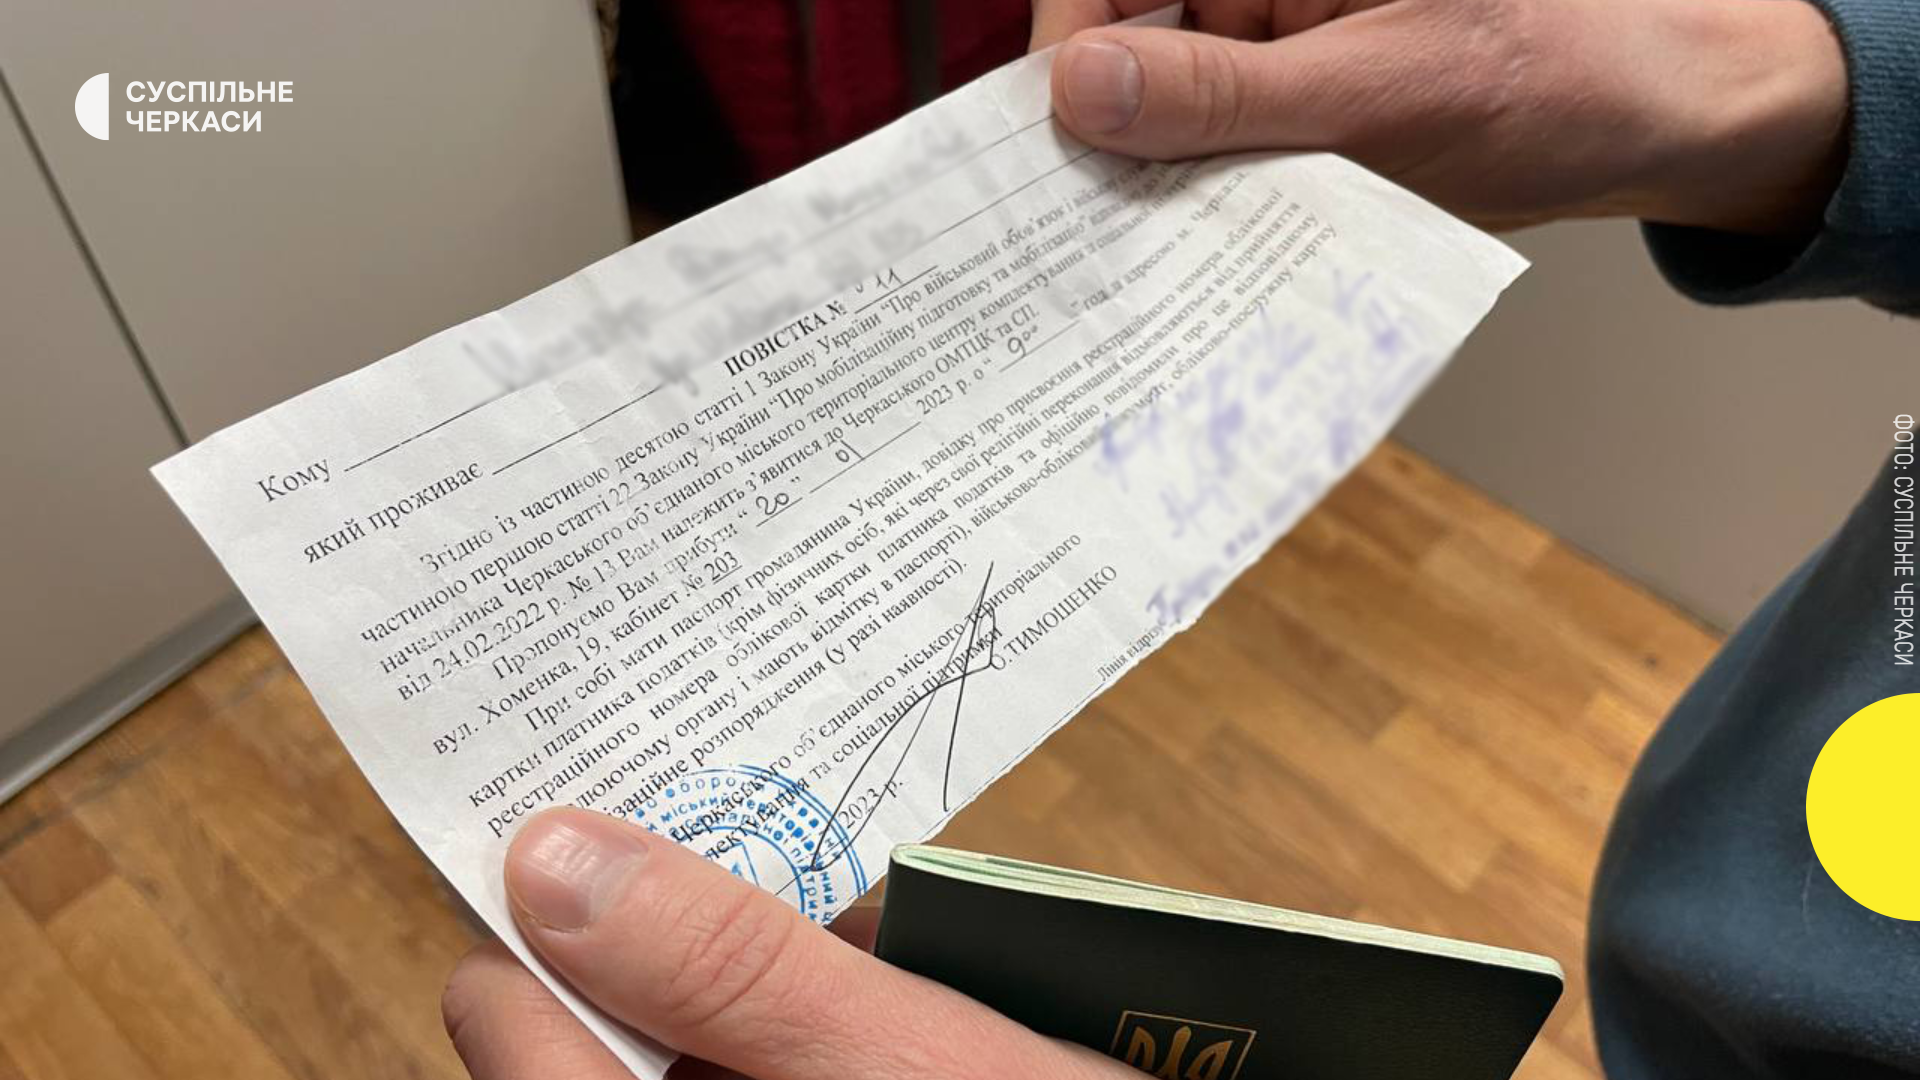 СУСПІЛЬНЕ
ЧЕРКАСИ
Кому
який проживає
ПОВІСТКА № 11
Згідно із частиною десятою статті 1 Закону України “Про військовий обов’язок і військову
частиною першою статті 22 Закону України “Про мобілізаційну підготовку та мобілізацію”
начальника Черкаського об’єднаного міського територіального центру комплектування та соціальної
від 24.02.2022 р. № 13 Вам належить з’явитися до Черкаського ОМТЦК та СП.
Пропонуємо Вам прибути “ 20 ” 01 2023 р. о “ 9⁰⁰ ” год за адресою м. Черкаси,
вул. Хоменка, 19, кабінет № 203
При собі мати паспорт громадянина України, довідку про присвоєння реєстраційного номера облікової
картки платника податків (крім фізичних осіб, які через свої релігійні переконання відмовляються від прийняття
реєстраційного номера облікової картки платника податків та офіційно повідомили про це відповідному
люючому органу і мають відмітку в паспорті), військово-обліковий документ, обліково-послужну картку
ізаційне розпорядження (у разі наявності).
Черкаського об’єднаного міського територіального
лектування та соціальної підтримки
О.ТИМОШЕНКО
2023 р.
Лінія відрізу
ФОТО: СУСПІЛЬНЕ ЧЕРКАСИ